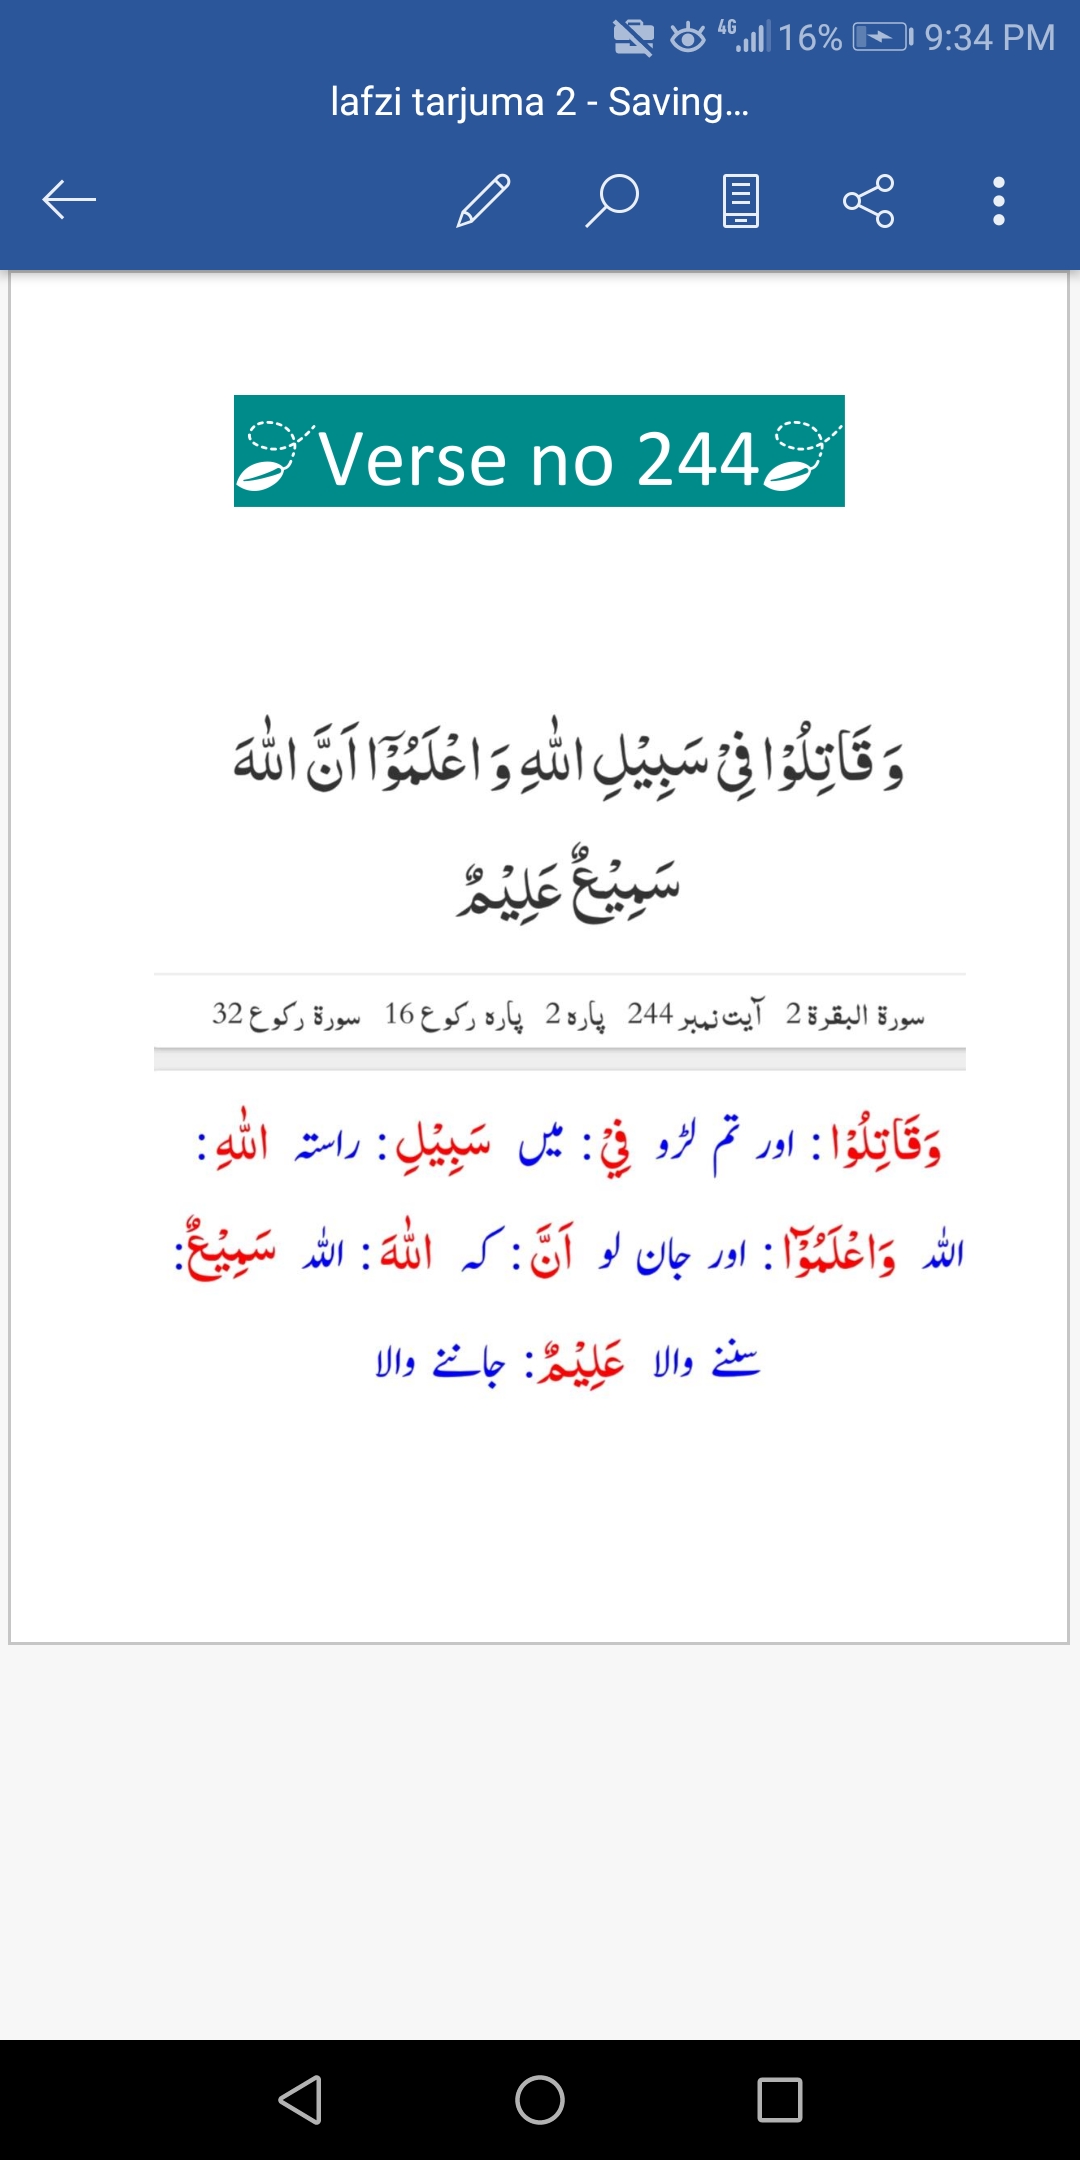 4G 16% 9:34 PM
lafzi tarjuma 2 - Saving...
Verse no 244
وَ قَاتِلُوْا فِیْ سَبِیْلِ اللّٰهِ وَ اعْلَمُوْۤا اَنَّ اللّٰهَ
سَمِیْعٌ عَلِیْمٌ
سورة البقرة 2 آیت نمبر 244 پارہ 2 پارہ رکوع 16 سورة رکوع 32
وَقَاتِلُوْا : اور تم لڑو فِيْ : میں سَبِيْلِ : راستہ اللّٰهِ :
اللہ وَاعْلَمُوْٓا : اور جان لو اَنَّ : کہ اللّٰهَ : اللہ سَمِيْعٌ :
سننے والا عَلِيْمٌ : جاننے والا